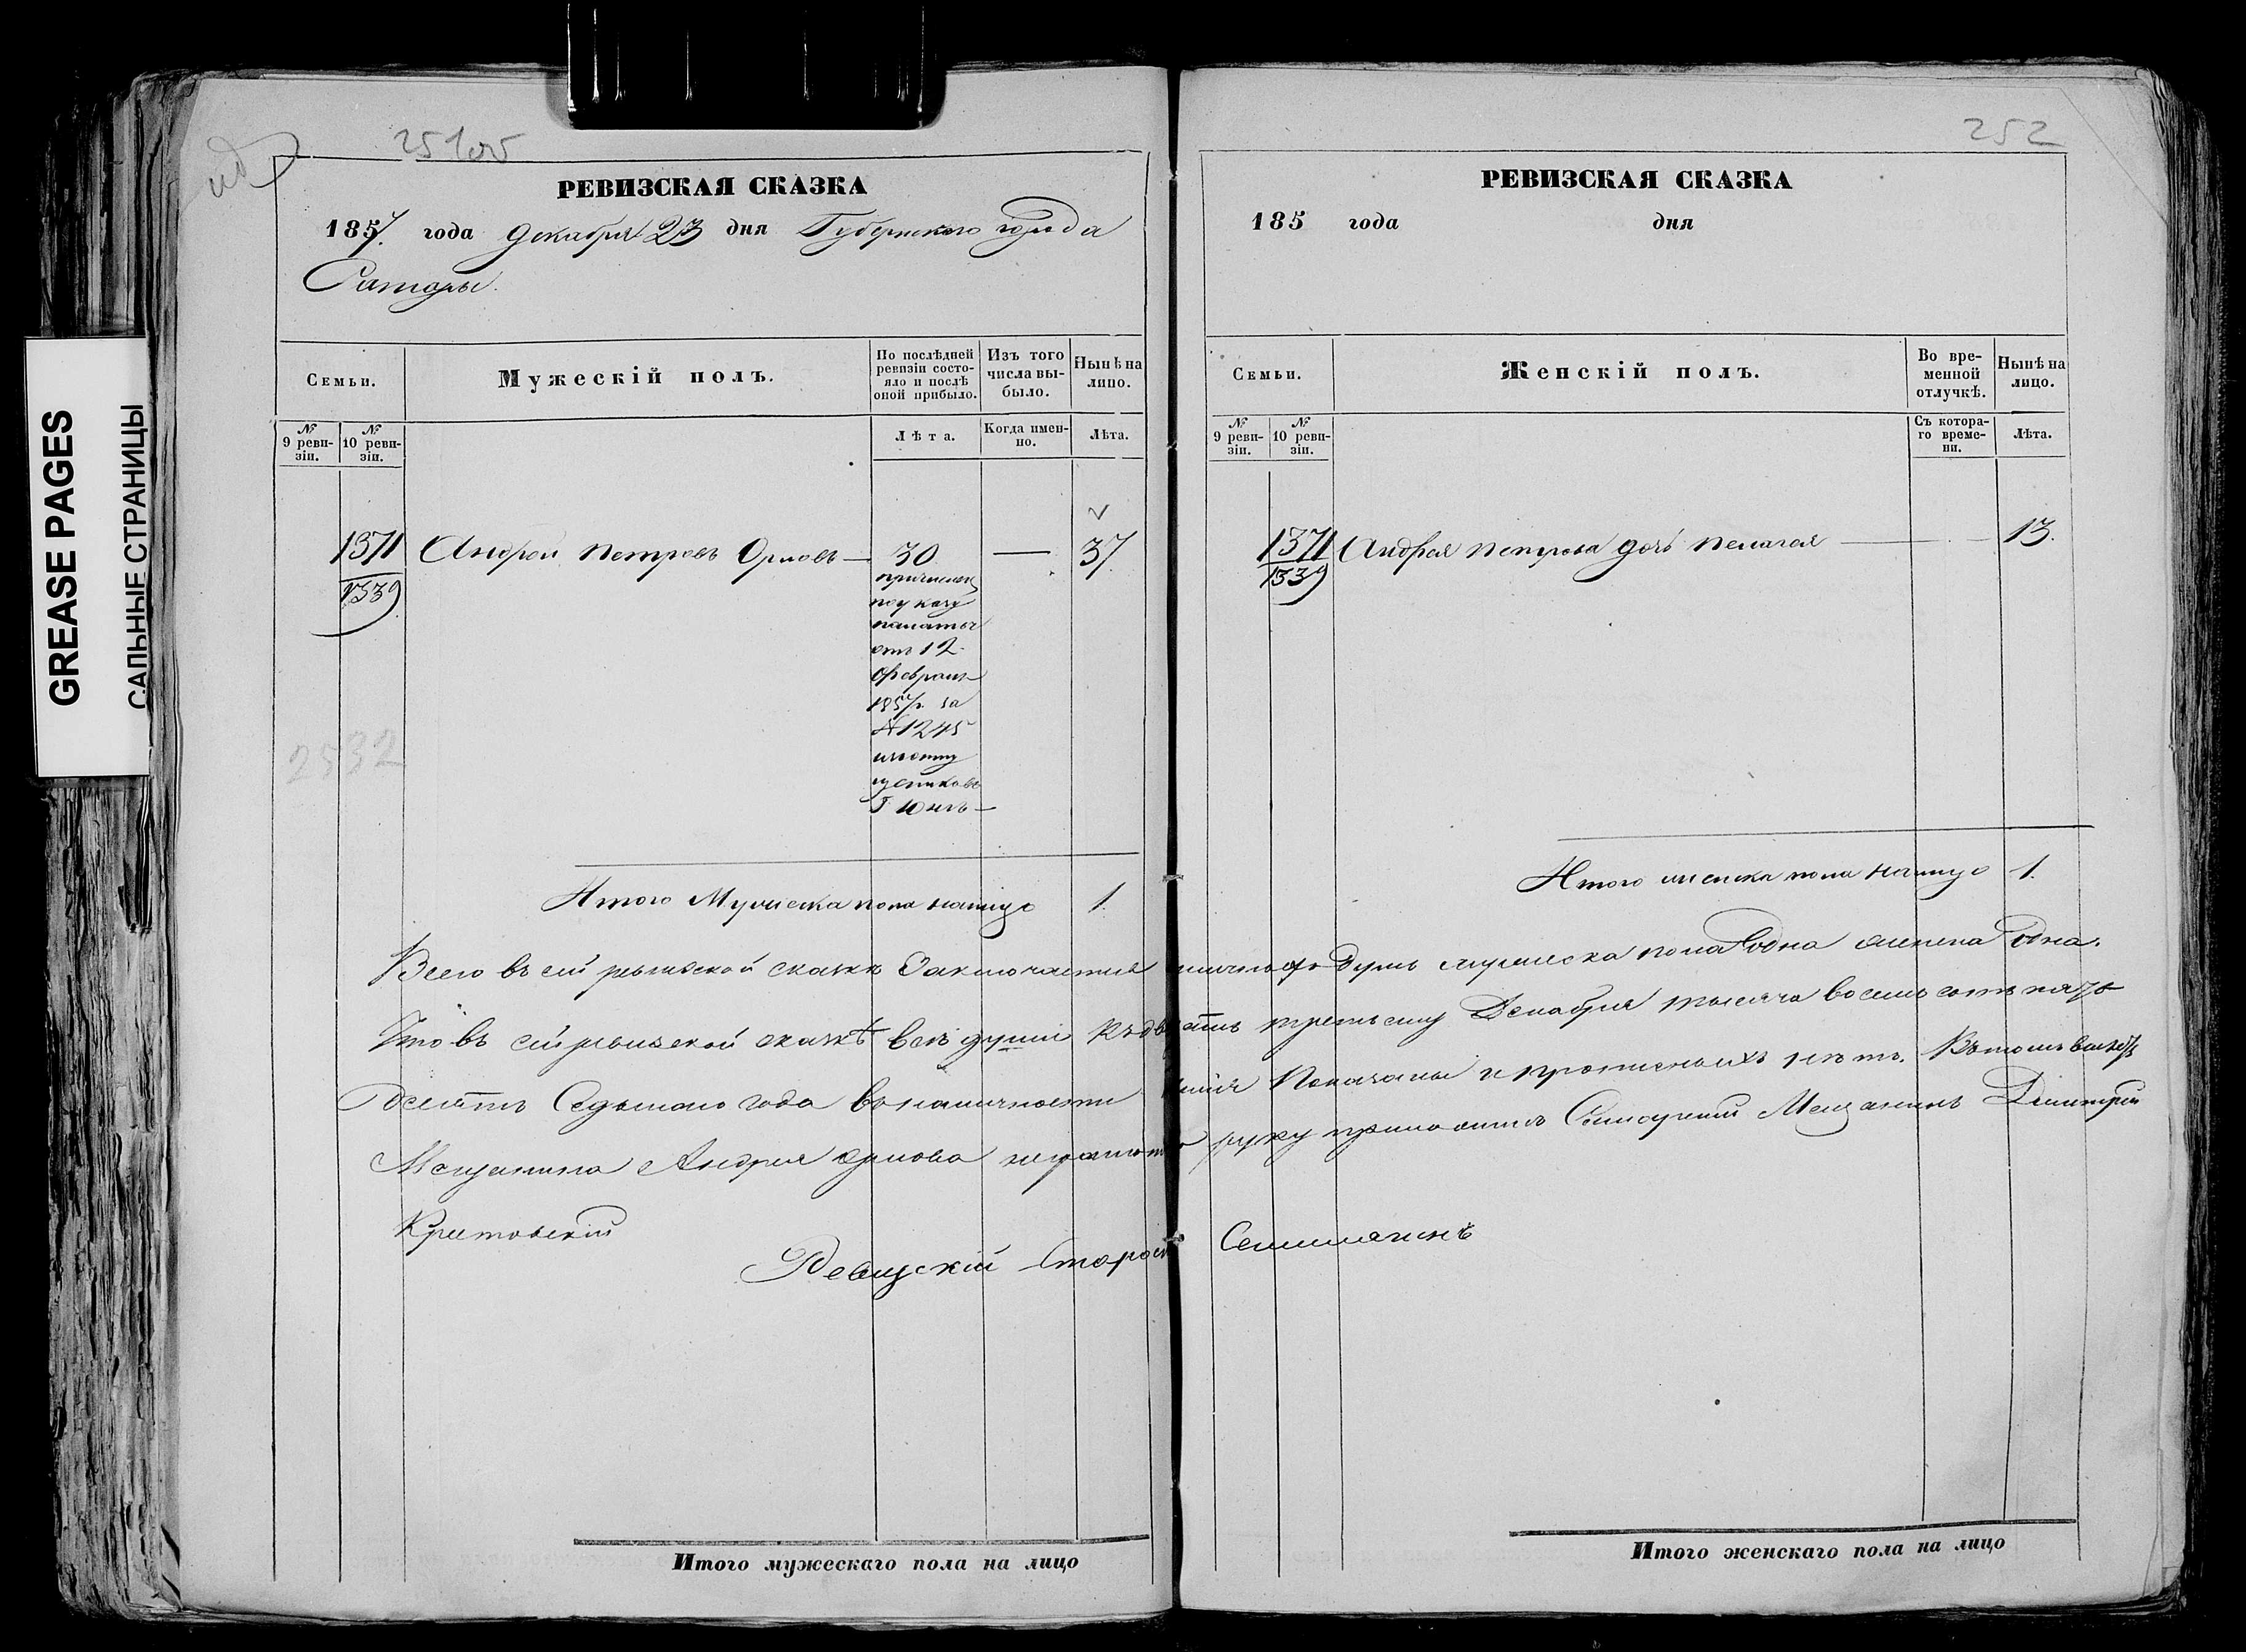 GREASE PAGES
САЛЬНЫЕ СТРАНИЦЫ
251об
РЕВИЗСКАЯ СКАЗКА
1857. года декабря 23 дня Губернского города
Самары.
Семьи.
Мужескій полъ.
По послѣдней ревизіи состояло и послѣ оной прибыло.
Изъ того числа выбыло.
Нынѣ на лицо.
№ 9 ревизіи.
№ 10 ревизіи.
Лѣта.
Когда именно.
Лѣта.
1371 Андрей Петровъ Орловъ — 30 — 37.
1339
причислен
по указу
палаты
отъ 12
Февраля
1857 г. за
№ 1245
2532
Итого Мужеска пола налицо 1.
252
РЕВИЗСКАЯ СКАЗКА
185 года дня
Семьи.
Женскій полъ.
Во временной отлучкѣ.
Нынѣ на лицо.
№ 9 ревизіи.
№ 10 ревизіи.
Съ котораго времени.
Лѣта.
1371 Андрея Петрова дочь Пелагея — 13.
1339
Итого женска пола налицо 1.
Всего въ сей ревизской сказкѣ Заключается душъ мужеска пола Одна женска Одна.
Что въ сей ревизской сказкѣ всѣ души Къ двадцать третьему Декабря тысяча восемь сотъ пять
десятъ Седьмаго года въ наличности Показаны и прописныхъ нетъ. Въ томъ вместо
Мещанина Андрея Орлова руку приложилъ Самарский Мещанинъ Дмитрий
Ревизскій Староста
Итого мужескаго пола на лицо
Итого женскаго пола на лицо